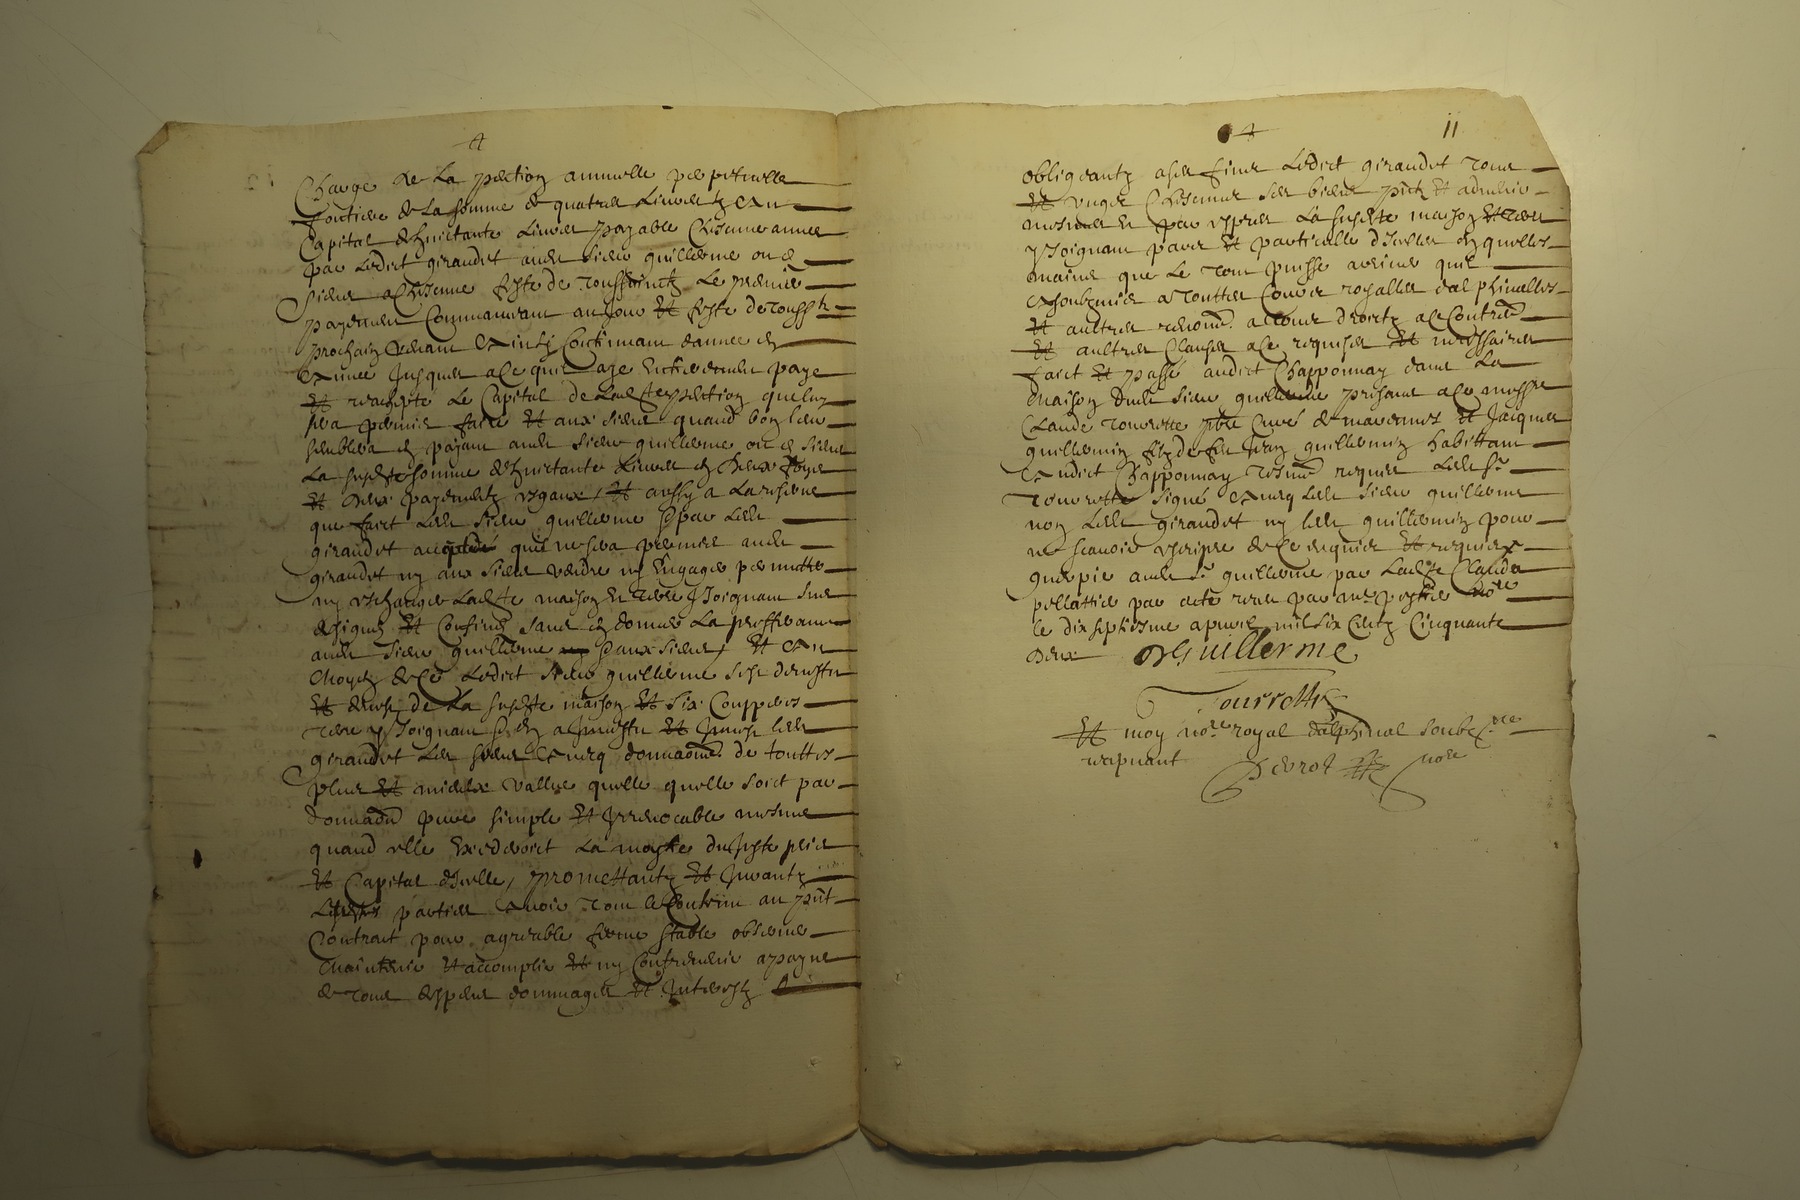 Charge de la pention annuelle perpetuelle
fontiere de la somme de quatres livres et en
Capital de huictante livres payable Chascune annee
par ledict giraudet audit sieur guillerme ou es
siens a Chascune feste de toussaintz le premier
payement Commancant au jour et feste de touss ts
prochain venant et ainsy Continuant dannee en
annee Jusques a ce quil aye entierement paye
et rachepte le Capital de ladite pention que luy
sera permis faire et aux siens quand bon leur
semblera en payant audit sieur guillerme ou es siens
la susdite somme de huictante livres en deux foys
et deux payementz esgaux, et aussy a la reserve
que faict ledit sieur guillerme par ledit
giraudet accepté quil ne sera permis audit
giraudet ny aux siens vendre ny Engager permutter
ny eschanger ladite maison et terre y Joignant sus
designes et Confines sans en donner la prefferance
audit sieur guillerme aux siens, et au
moyen de ce ledict sieur guillerme sest desvestu
et desmis de la susdite maison et six Couppees
terre y Joignant en a Investu et Invest ledit
giraudet les siens avecq donnaon de touttes
plus et mieux vallue quelle quelle soict par
donnaon pure simple et Irrevocable mesme
quand elle Excederoict la moytie du Juste prix
et Capital dicelle, promettantz et Jurantz
lesdites parties avoir tout le Contenu au pnt
Contract pour agreable ferme stable observer
maintenir et accomplir et ny Contrevenir a payne
de tous despens dommages et Interestz
11
obligeantz a ses fins ledict giraudet tous
et ungs Chascuns ses biens pntz et advenir
mesmes et par expres la susdite maison et terre
y Joignant pure et particulle dicelles en quelles
mains que le tout puisse advenir quil
a soubzmis a touttes Cours royalles dalphinalles
et aultres renon a tous droictz a ce Contre
et aultres Clauses a ce requises et necessaires
faict et passé audict Chapponnay dans la
maison dudit sieur guillerme presant a ce messe
Claude tourrette pbre Curé de marcennes et Jacques
guillermin filz de feu Jean guillermin habittant
audict Chapponnay tesmo requis ledit sr
tourrette signé avecq ledit sieur guillerme
non ledit giraudet ny ledit guillermin pour
ne scavoir escripre de ce enquis et requis
guerpie audit sr guillerme par ladite Claude
pellattier par acte receu par me no re
le dix septiesme apvril mil six Centz Cinquante
deux DGuillerme
Tourrette
et moy no re royal dalphinal soubz ne
recepvant nore